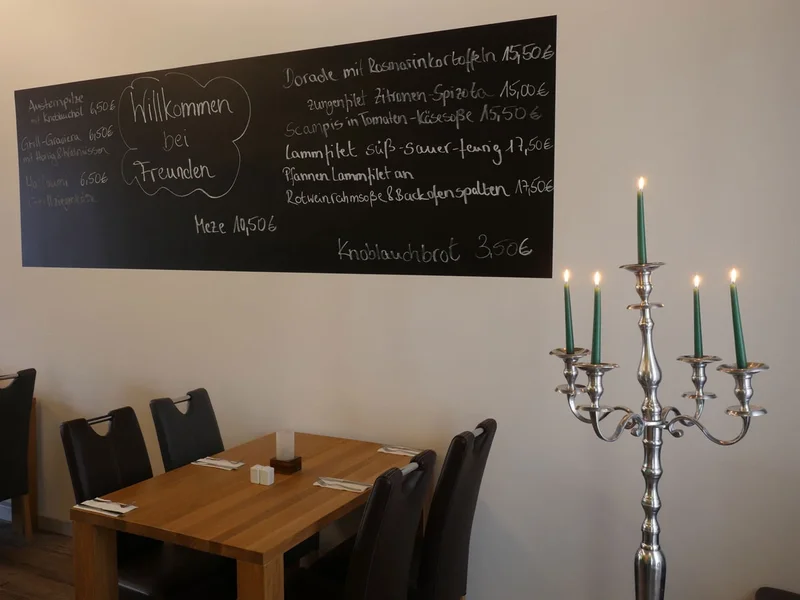 Austernpilze
mit Knoblauchöl 6,50€
Grill-Graviera 6,50€
mit Honig & Walnüssen
6,50€
Willkommen
bei
Freunden
Meze 10,50€
Dorade mit Rosmarinkartoffeln 15,50€
Zungenfilet Zitronen-Spizota 15,00€
Scampis in Tomaten-Käsesoße 15,50€
Lammfilet süß-sauer-feurig 17,50€
Pfannen Lammfilet an
Rotweinrahmsoße & Backofenspalten 17,50€
Knoblauchbrot 3,50€